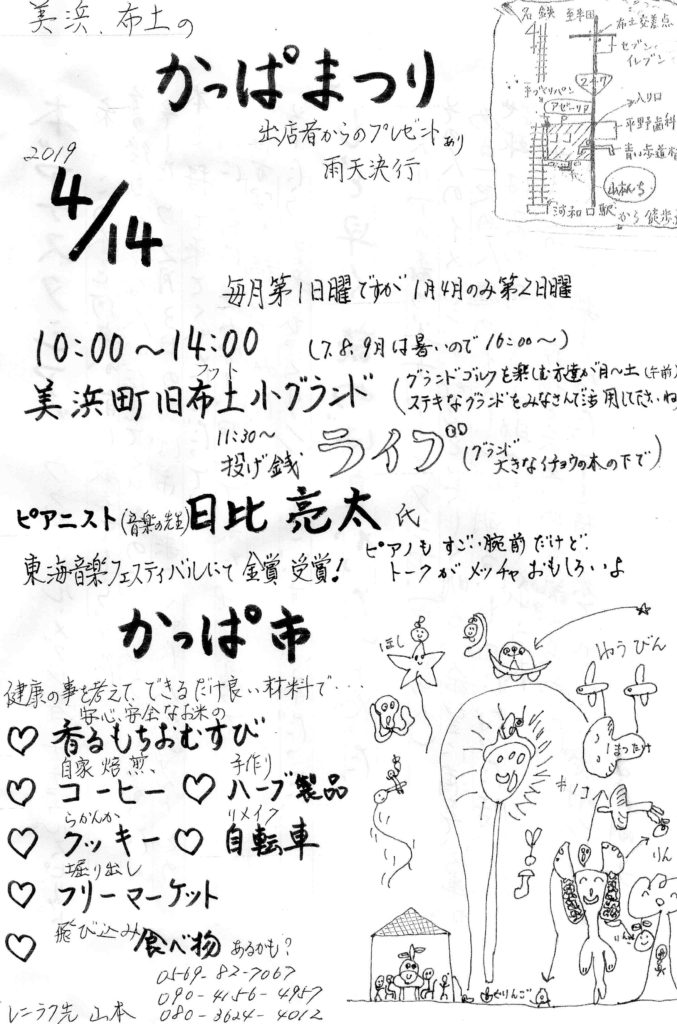 美浜、布土の
かっぱまつり
出店者からのプレゼントあり
雨天決行
2019
4/14
名鉄 至半田
布土交差点
セブン・
イレブン
247
手づくりパン
アゼーリア
P
入り口
ココ
平野歯科
青い歩道橋
山本んち
河和口駅から徒歩
毎月第1日曜ですが1月4月のみ第2日曜
10:00～14:00 (7.8.9月は暑いので16:00～)
フット
美浜町旧布土小グランド
(グランドゴルフを楽しむ方達が月～土(午前)
ステキなグランドをみなさんで活用して下さいね
11:30～
投げ銭 ライブ (グランド
大きなイチョウの木の下で)
ピアニスト(音楽の先生)日比 亮太 氏
東海音楽フェスティバルにて 金賞 受賞!
ピアノもすごい腕前だけど、
トークがメッチャおもしろいよ
かっぱ市
健康の事を考えて、できるだけ良い材料で・・・
安心、安全なお米の
♡ 香るもちおむすび
自家焙煎、 手作り
♡ コーヒー ♡ ハーブ製品
らかんか リメイク
♡ クッキー ♡ 自転車
掘り出し
♡ フリーマーケット
♡ 飛び込み食べ物 あるかも?
0569-82-7067
090-4156-4957
080-3624-4012
レンラク先 山本
ほし
ゆうびん
まつたけ
キノコ
りん
りんご